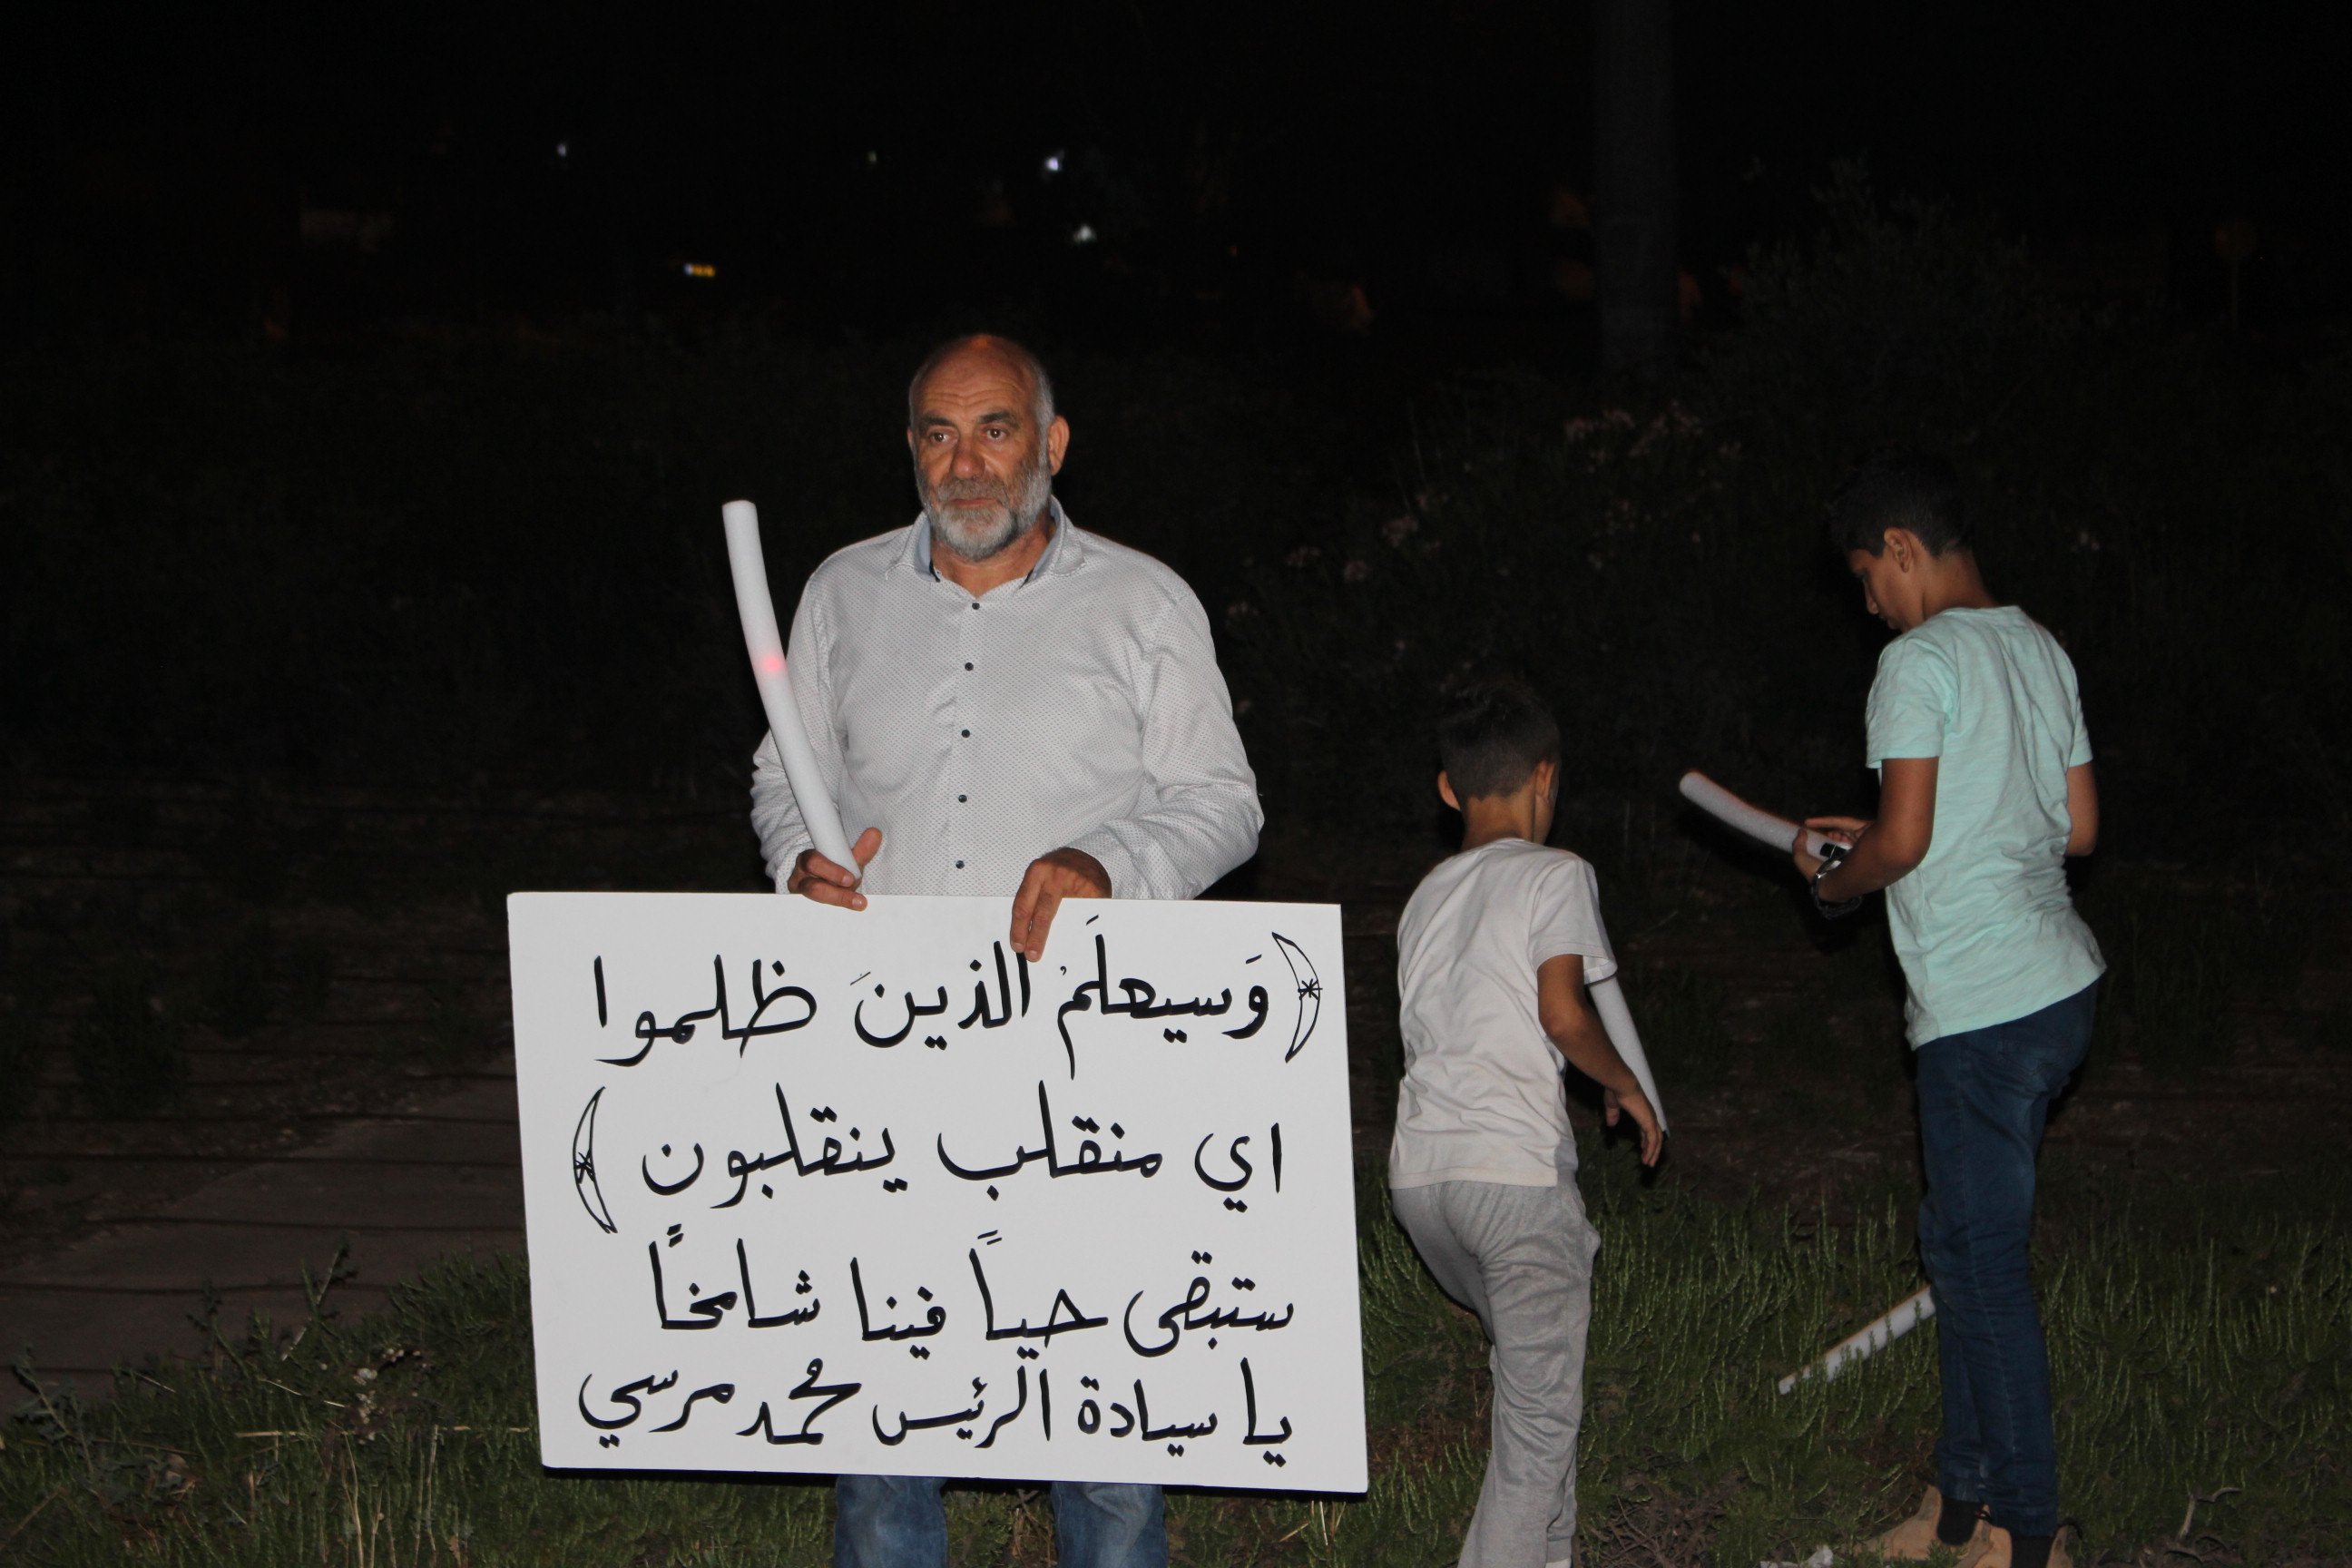 ﴿وَسيعلَمُ الذينَ ظلموا
اي منقلب ينقلبون﴾
ستبقى حياً فينا شامخاً
يا سيادة الرئيس محمد مرسي